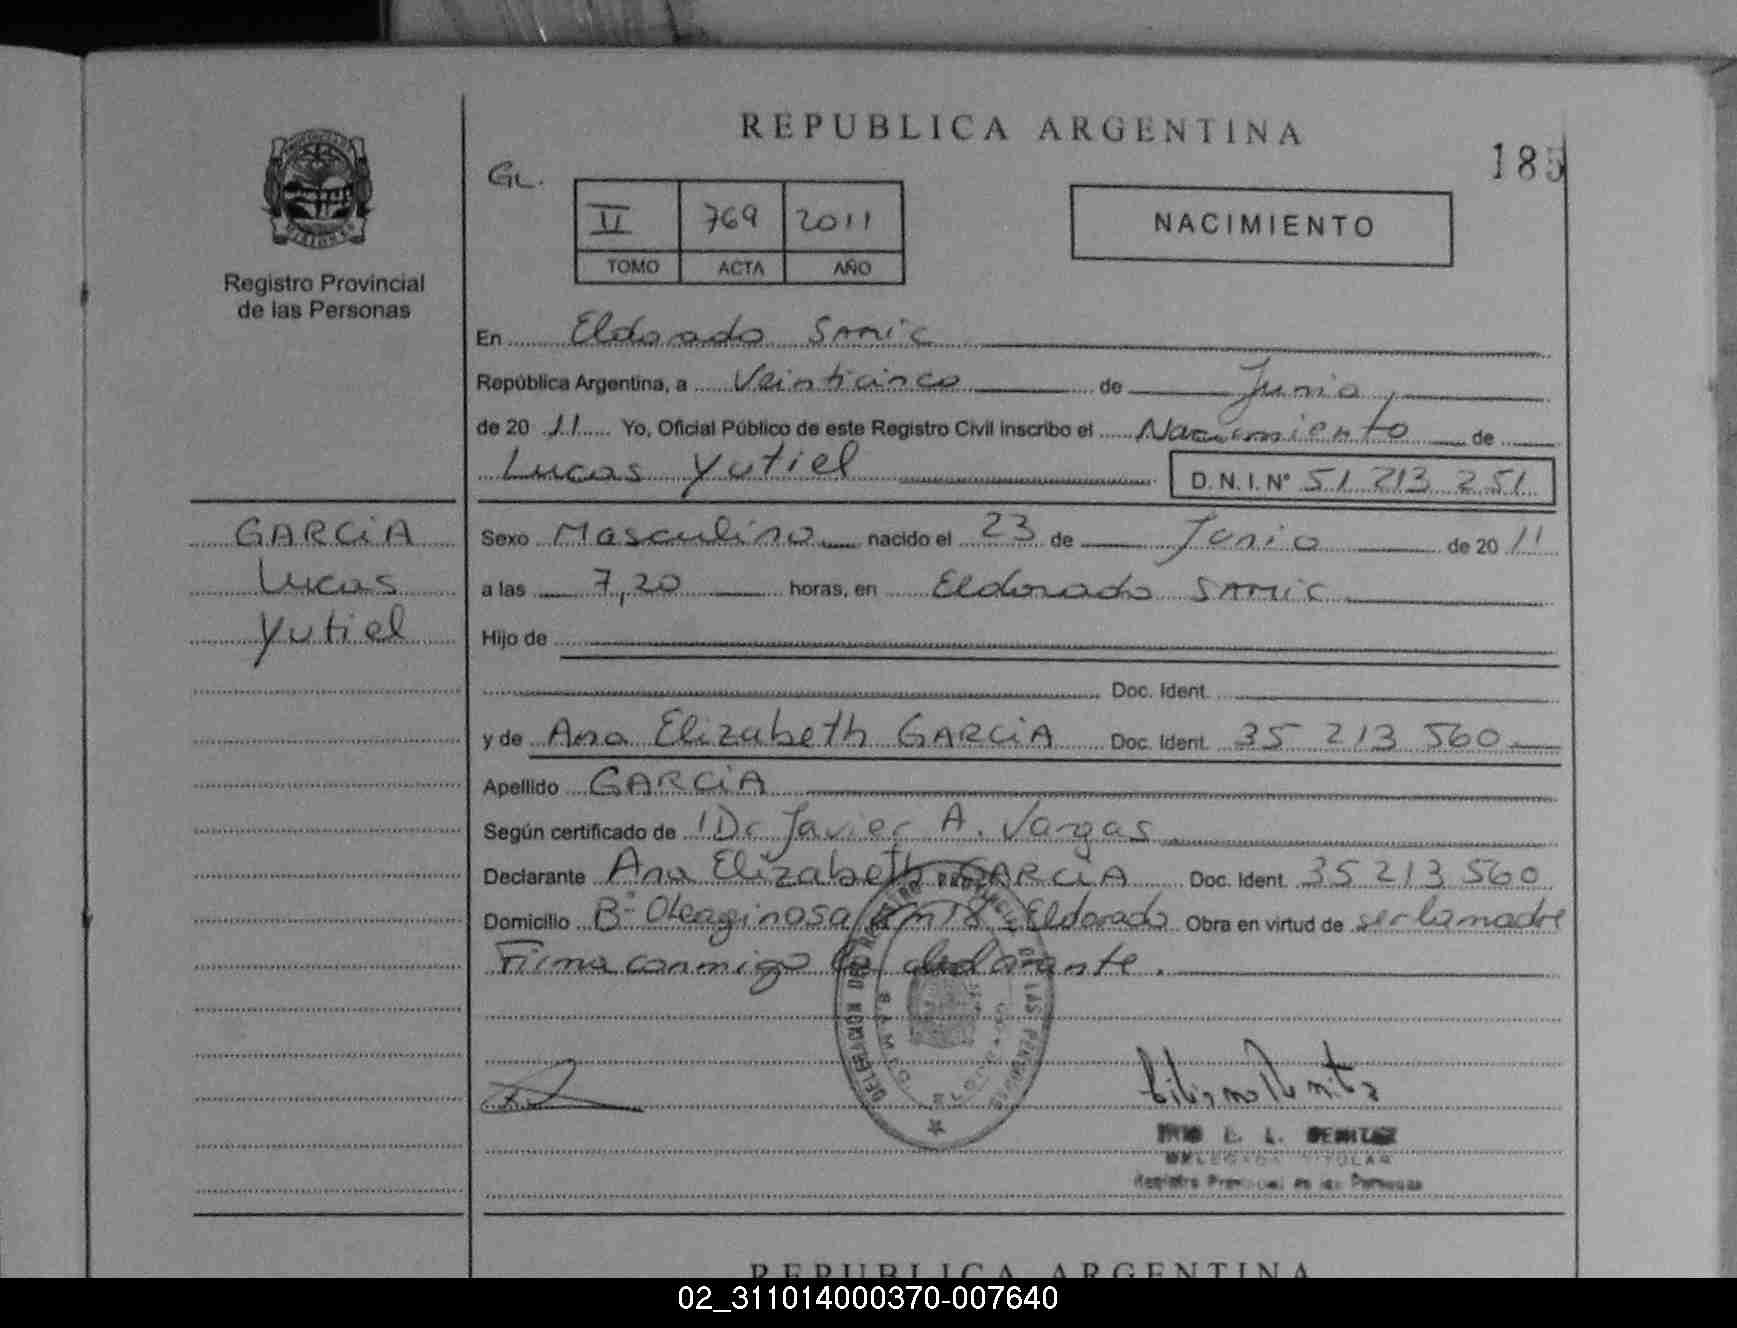 REPUBLICA ARGENTINA
185
GL.
II 769 2011
TOMO ACTA AÑO
NACIMIENTO
Registro Provincial
de las Personas
En Eldorado SAMIC
República Argentina, a Veinticinco de Junio
de 20 11 Yo, Oficial Público de este Registro Civil inscribo el Nacimiento de
Lucas Yutiel D.N.I. Nº 51 213 251
GARCiA
Lucas
Yutiel
Sexo Masculino nacido el 23 de Junio de 20 11
a las 7,20 horas, en Eldorado SAMIC
Hijo de
Doc. Ident.
y de Ana Elizabeth GARCiA Doc. Ident. 35 213 560
Apellido GARCiA
Según certificado de Dr Javier A. Vargas
Declarante Ana Elizabeth GARCiA Doc. Ident. 35 213 560
Domicilio Bº Oleaginosa Km 18 Eldorado Obra en virtud de ser la madre
Firma conmigo la declarante.
DELEGACION DEL REGISTRO PROVINCIAL DE LAS PERSONAS
DELEGADA TITULAR
Registro Provincial de las Personas
REPUBLICA ARGENTINA
02_311014000370-007640